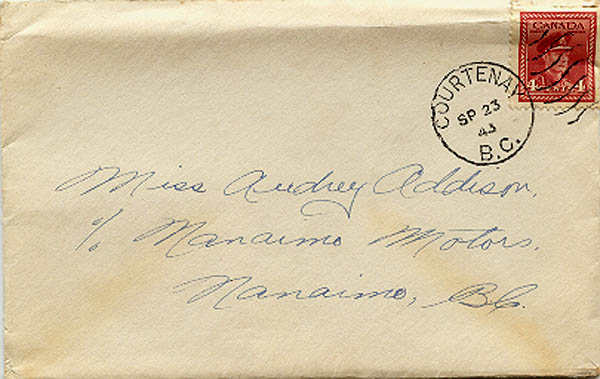 CANADA
4 CENTS 4
COURTENAY
SP 23
43
B.C.
Miss Audrey Addison,
c/o Nanaimo Motors,
Nanaimo, B.C.